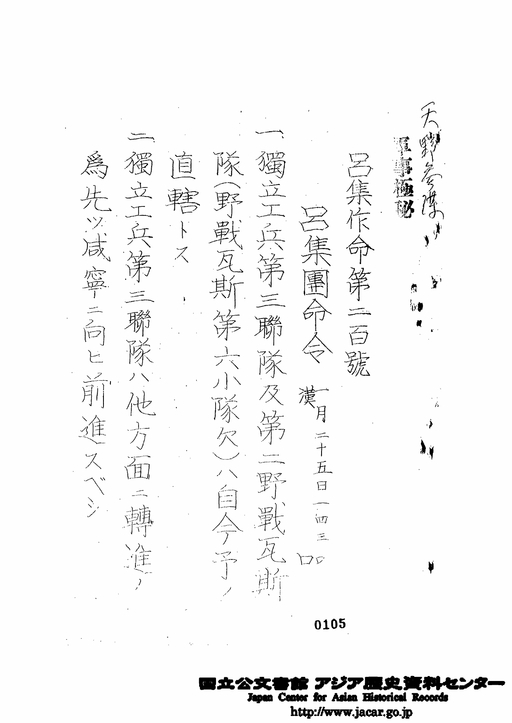 天野参謀
軍事極秘
呂集作命第二百號
呂集團命令
一月二十五日一四三〇
漢口
一、獨立工兵第三聯隊及第二野戰瓦斯
隊(野戰瓦斯第六小隊欠)ハ自今予ノ
直轄トス
二、獨立工兵第三聯隊ハ他方面ニ轉進ノ
爲先ツ咸寧ニ向ヒ前進スベシ
0105
国立公文書館 アジア歴史資料センター
Japan Center for Asian Historical Records
http://www.jacar.go.jp